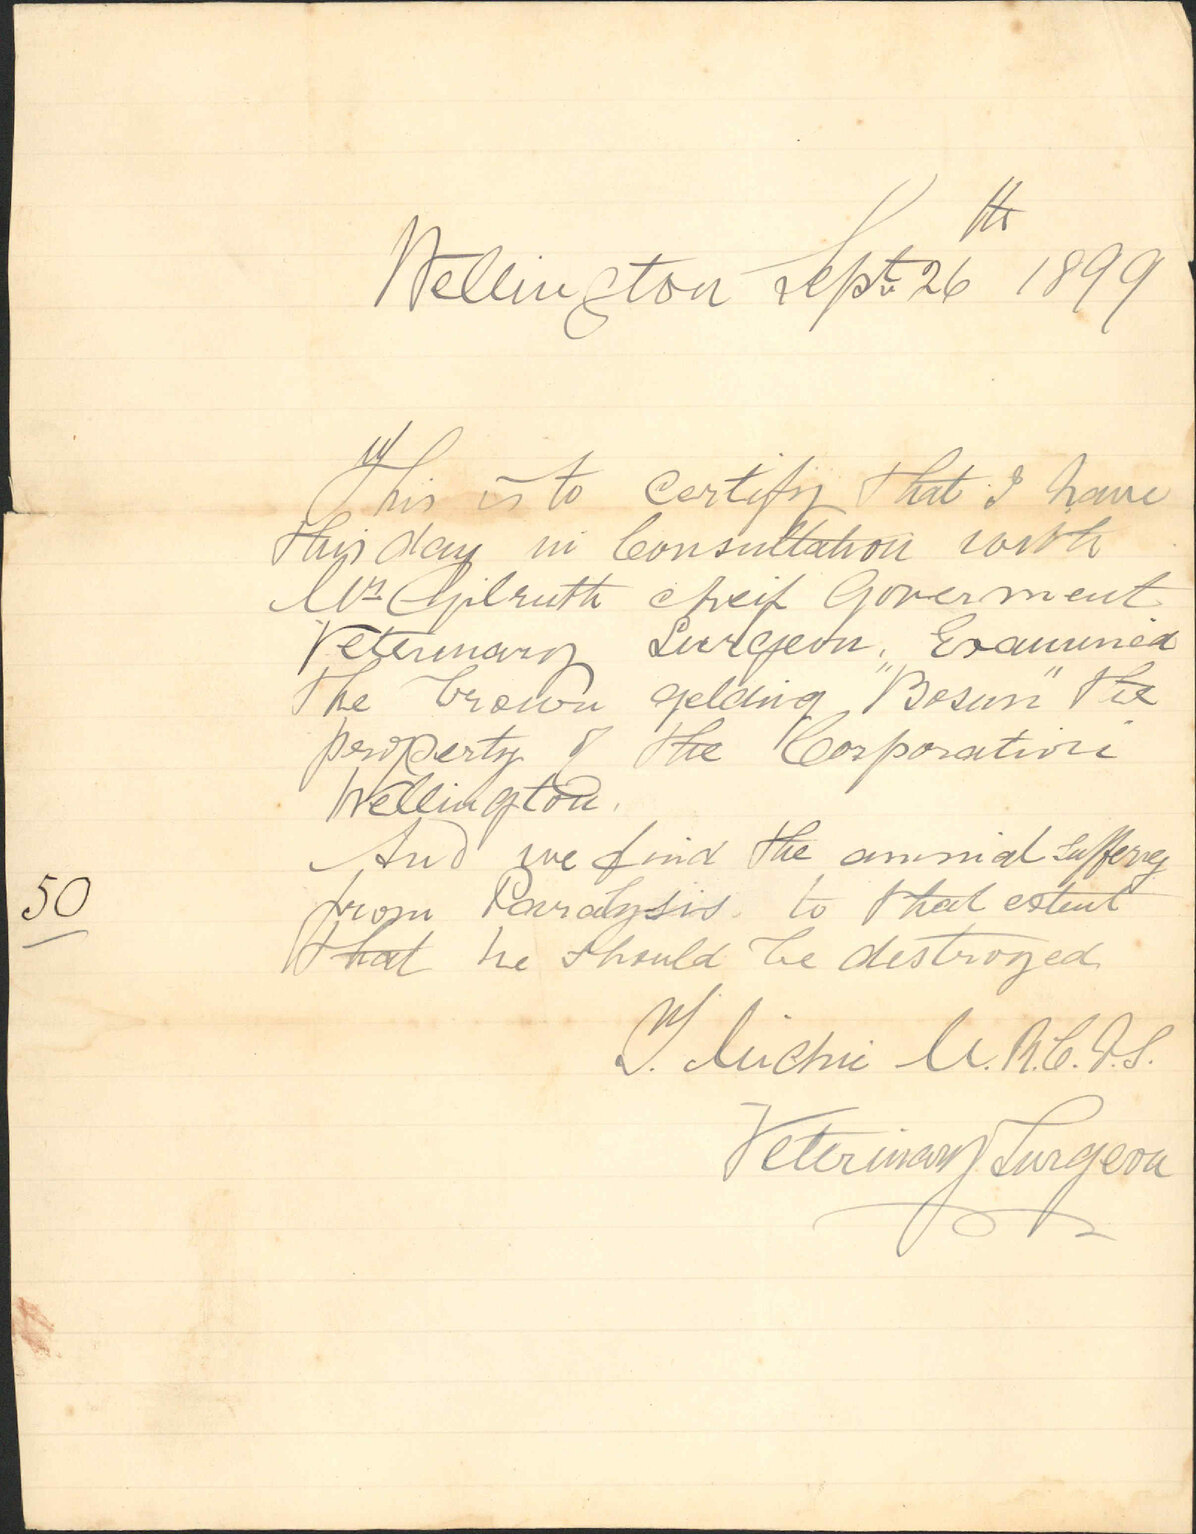 Wellington Sept. 26th 1899
This is to Certify that I have
this day in Consultation with
Mr Gilruth cheif Goverment
Veterinary Surgeon. Examined
the brown gelding "Bosun" the
property of the Corporation
Wellington.
And we find the anmial Suffering
from Paralysis. to that extent
50
that he should be destroyed
T. Michie M.R.C.V.S.
Veterinary Surgeon